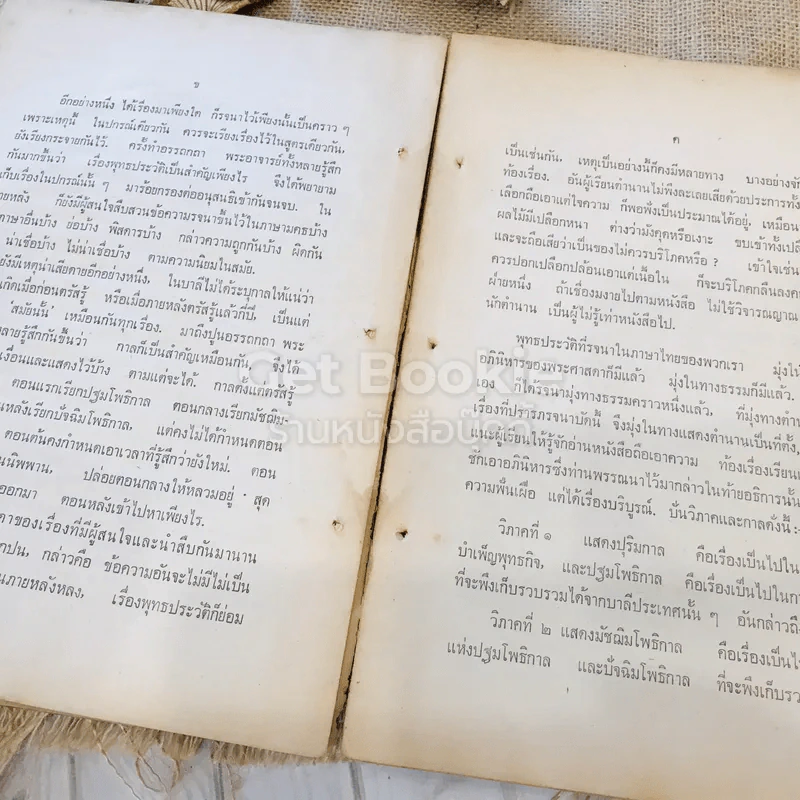 ข
อีกอย่างหนึ่ง ได้เรื่องมาเพียงใด ก็รจนาไว้เพียงนั้นเป็นคราว ๆ
เพราะเหตุนี้ ในปกรณ์เดียวกัน ควรจะเรียงเรื่องไว้ในสูตรเดียวกัน,
ยังเรียงกระจายกันไว้. ครั้งทำอรรถกถา พระอาจารย์ทั้งหลายรู้สึก
กันมากขึ้นว่า เรื่องพุทธประวัติเป็นสำคัญเพียงไร จึงได้พยายาม
เก็บเรื่องในปกรณ์นั้น ๆ มาร้อยกรองต่ออนุสนธิเข้ากันจนจบ. ใน
ายหลัง ก็ยังมีผู้สนใจสืบสวนข้อความรจนาขึ้นไว้ในภาษามคธบ้าง
ภาษาอื่นบ้าง ย่อบ้าง พิสดารบ้าง กล่าวความถูกกันบ้าง ผิดกัน
น่าเชื่อบ้าง ไม่น่าเชื่อบ้าง ตามความนิยมในสมัย.
ยังมีเหตุน่าเสียดายอีกอย่างหนึ่ง, ในบาลีไม่ได้ระบุกาลให้แน่ว่า
เกิดเมื่อก่อนตรัสรู้ หรือเมื่อภายหลังตรัสรู้แล้วกี่ปี, เป็นแต่
'สมัยนั้น' เหมือนกันทุกเรื่อง. มาถึงปูนอรรถกถา พระ
ลายรู้สึกกันขึ้นว่า กาลก็เป็นสำคัญเหมือนกัน, จึงได้
เงื่อนและแสดงไว้บ้าง ตามแต่จะได้. กาลตั้งแต่ตรัสรู้
ตอนแรกเรียกปฐมโพธิกาล ตอนกลางเรียกมัชฌิม-
หลังเรียกปัจฉิมโพธิกาล, แต่คงไม่ได้กำหนดตอน
ตอนต้นคงกำหนดเอาเวลาที่รู้สึกว่ายังใหม่. ตอน
นนิพพาน, ปล่อยตอนกลางให้หลวมอยู่ สุด
ออกมา ตอนหลังเข้าไปหาเพียงไร.
าของเรื่องที่มีผู้สนใจและนำสืบกันมานาน
กปน, กล่าวคือ ข้อความอันจะไม่มีไม่เป็น
นภายหลังหลง, เรื่องพุทธประวัติก็ย่อม
ค
เป็นเช่นกัน, เหตุเป็นอย่างนี้ก็คงมีหลายทาง บางอย่างจั
ท้องเรื่อง. อันผู้เรียนตำนานไม่พึงละเลยเสียด้วยประการทั้ง
เลือกถือเอาแต่ใจความ ก็พอฟังเป็นประมาณได้อยู่, เหมือน
ผลไม้มีเปลือกหนา ต่างว่ามังคุดหรือเงาะ ขบเข้าทั้งเปลื
และจะถือเสียว่าเป็นของไม่ควรบริโภคหรือ ? เข้าใจเช่น
ควรปอกเปลือกปล้อนเอาแต่เนื้อใน ก็จะบริโภคกลืนลงค
ฝ่ายหนึ่ง ถ้าเชื่องมงายไปตามหนังสือ ไม่ใช้วิจารณญาณ
นักตำนาน เป็นผู้ไม่รู้เท่าหนังสือไป.
พุทธประวัติที่รจนาในภาษาไทยของพวกเรา มุ่งไ
อภินิหารของพระศาสดาก็มีแล้ว มุ่งในทางธรรมก็มีแล้ว.
เอง ได้รจนามุ่งทางธรรมคราวหนึ่งแล้ว, ที่มุ่งทางตำน
เรื่องที่ปรารภรจนาบัดนี้ จึงมุ่งในทางแสดงตำนานเป็นที่ตั้ง,
แนะผู้เรียนให้รู้จักอ่านหนังสือถือเอาความ ท้องเรื่องเรียนแ
ชักเอาอภินิหารซึ่งท่านพรรณนาไว้มากล่าวในท้ายอธิการนั้น
ความฟั่นเฝือ แต่ได้เรื่องบริบูรณ์. ปันวิภาคและกาลดั่งนี้ :-
วิภาคที่ ๑ แสดงปุริมกาล คือเรื่องเป็นไปใน
บำเพ็ญพุทธกิจ, และปฐมโพธิกาล คือเรื่องเป็นไปในก
ที่จะพึงเก็บรวบรวมได้จากบาลีประเทศนั้น ๆ อันกล่าวถึ
วิภาคที่ ๒ แสดงมัชฌิมโพธิกาล คือเรื่องเป็นไ
แห่งปฐมโพธิกาล และปัจฉิมโพธิกาล ที่จะพึงเก็บรว
Get BooKie
ร้านหนังสือบุ๊คกี้